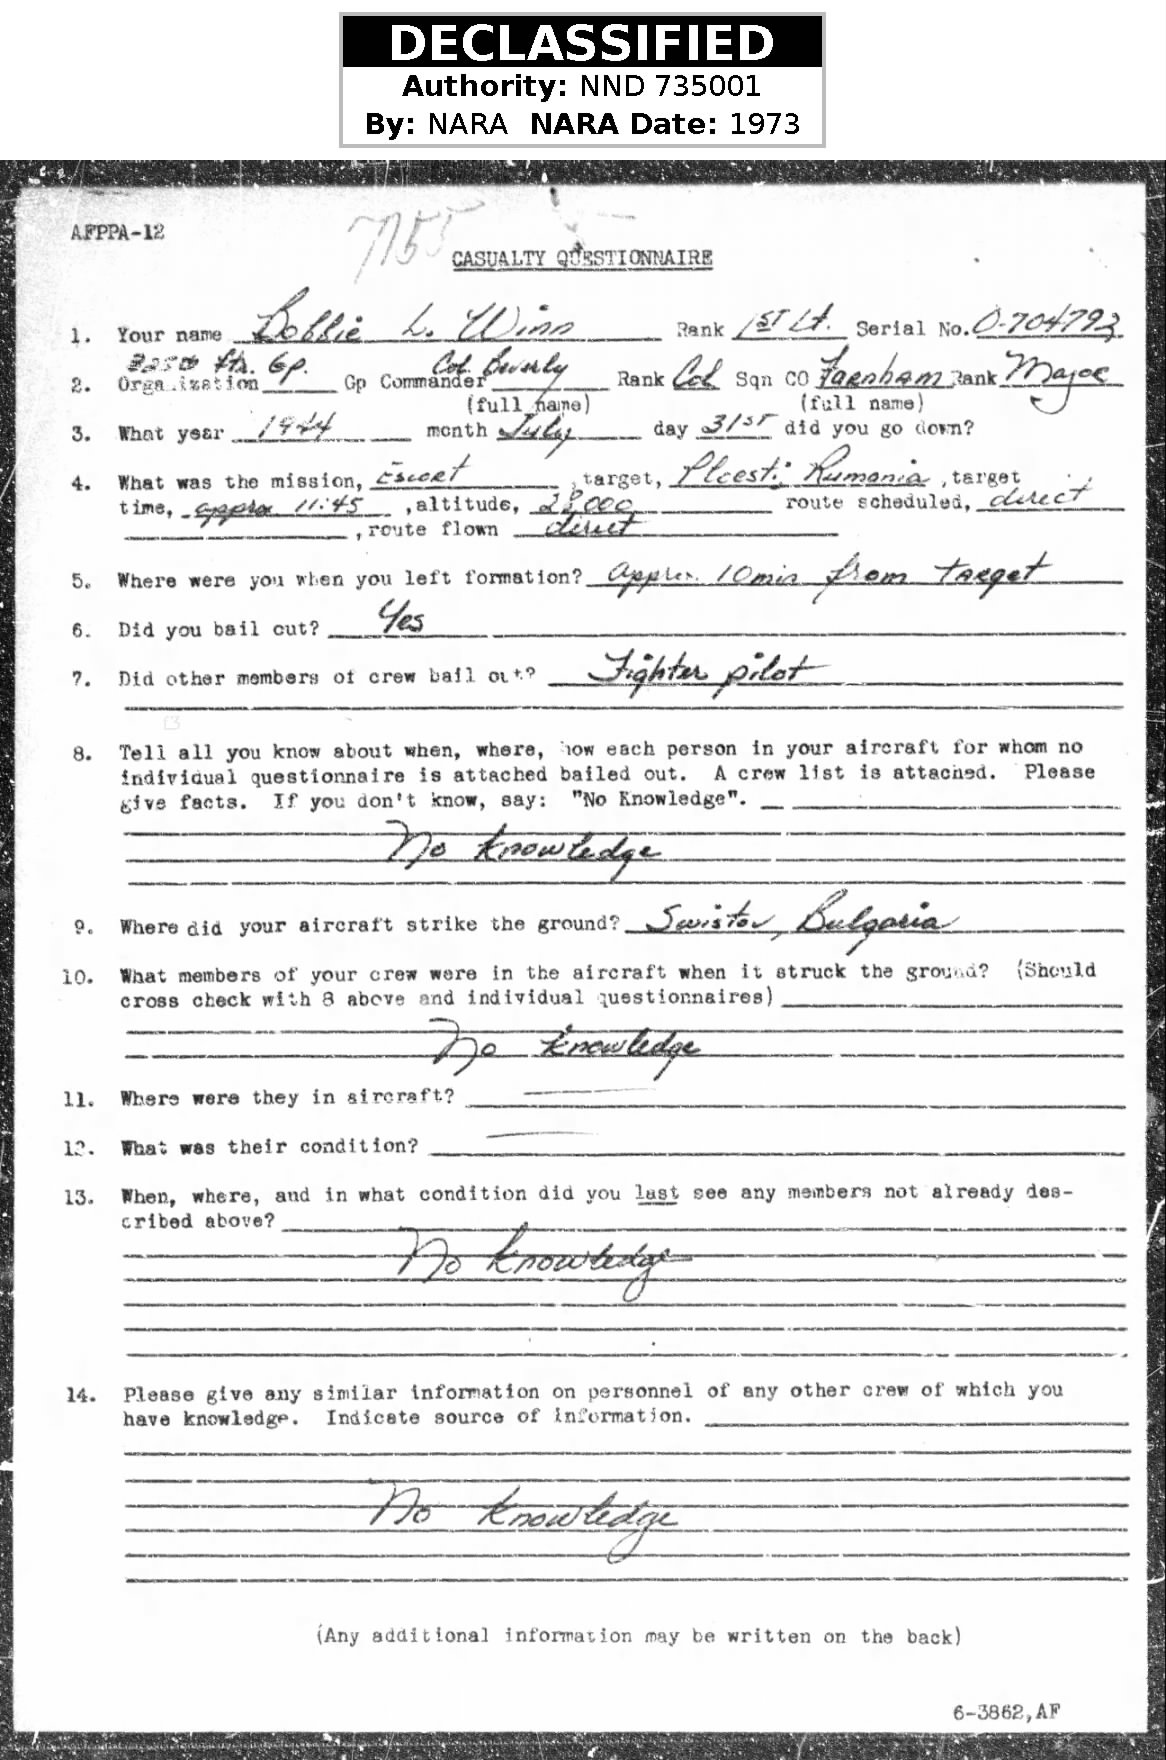 DECLASSIFIED
Authority: NND 735001
By: NARA NARA Date: 1973
AFPPA-12
7155
CASUALTY QUESTIONNAIRE
1. Your name Bobbie L. Winn Rank 1ST Lt. Serial No. O-704793
325th Ftr. Gp. Col. Beverly
2. Organization Gp Commander Rank Col Sqn CO Farnham Rank Major
(full name) (full name)
3. What year 1944 month July day 31ST did you go down?
4. What was the mission, Escort , target, Ploesti Rumania , target
time, approx 11:45 , altitude, 28,000 route scheduled, direct
, route flown direct
5. Where were you when you left formation? Approx. 10 min from target
6. Did you bail out? Yes
7. Did other members of crew bail out? Fighter pilot
8. Tell all you know about when, where, how each person in your aircraft for whom no
individual questionnaire is attached bailed out. A crew list is attached. Please
give facts. If you don't know, say: "No Knowledge".
No knowledge
9. Where did your aircraft strike the ground? Swistov, Bulgaria
10. What members of your crew were in the aircraft when it struck the ground? (Should
cross check with 8 above and individual questionnaires)
No knowledge
11. Where were they in aircraft?
12. What was their condition?
13. When, where, and in what condition did you last see any members not already des-
cribed above?
No knowledge
14. Please give any similar information on personnel of any other crew of which you
have knowledge. Indicate source of information.
No knowledge
(Any additional information may be written on the back)
6-3862,AF